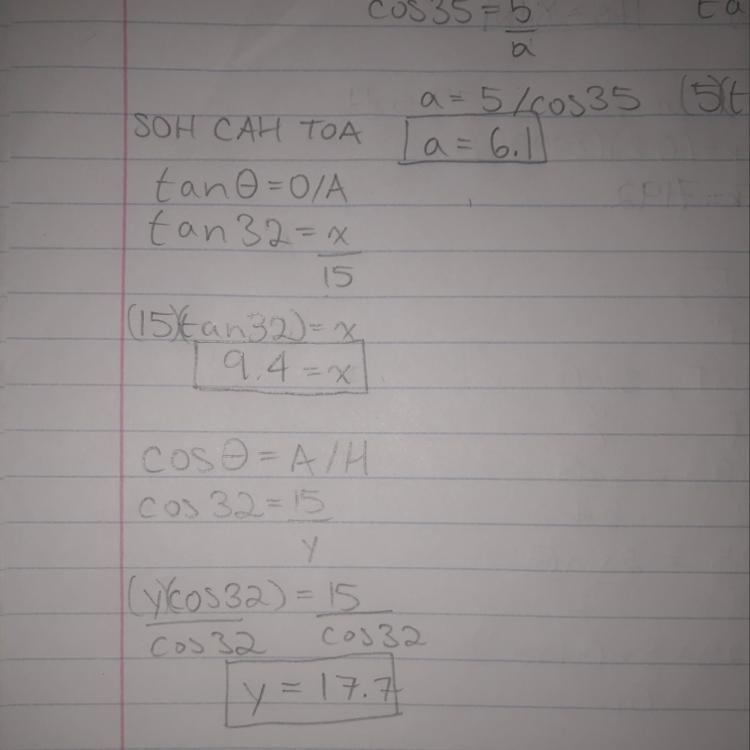 cos35 = 5
a
a = 5/cos35 (5)(t
SOH CAH TOA
a = 6.1
tanθ = O/A
tan32 = x
15
(15)(tan32) = x
9.4 = x
cosθ = A/H
cos32 = 15
y
(y)(cos32) = 15
cos32 cos32
y = 17.7